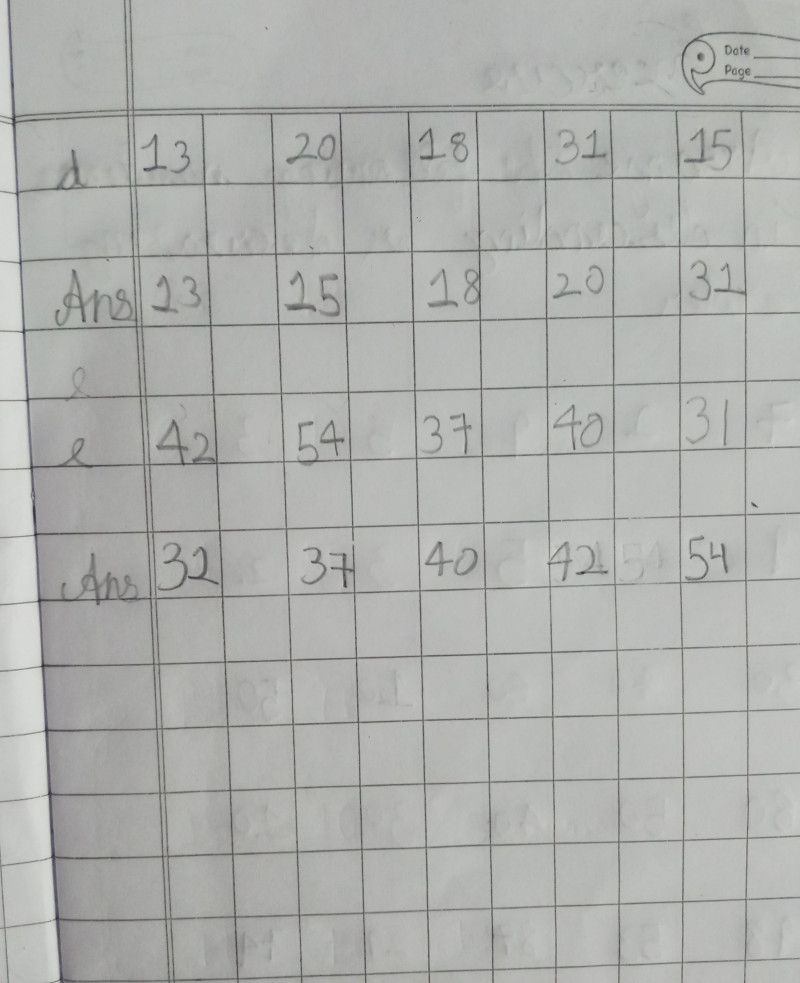 Date
Page
d 13 20 18 31 15
Ans 13 15 18 20 31
e
e 42 54 37 40 31
Ans 32 37 40 42 54